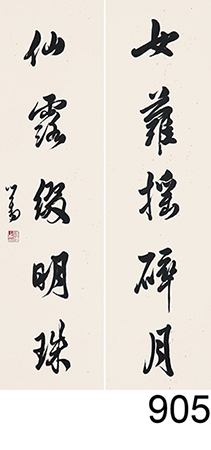 女蘿搖碎月
仙露綴明珠
心畬
905